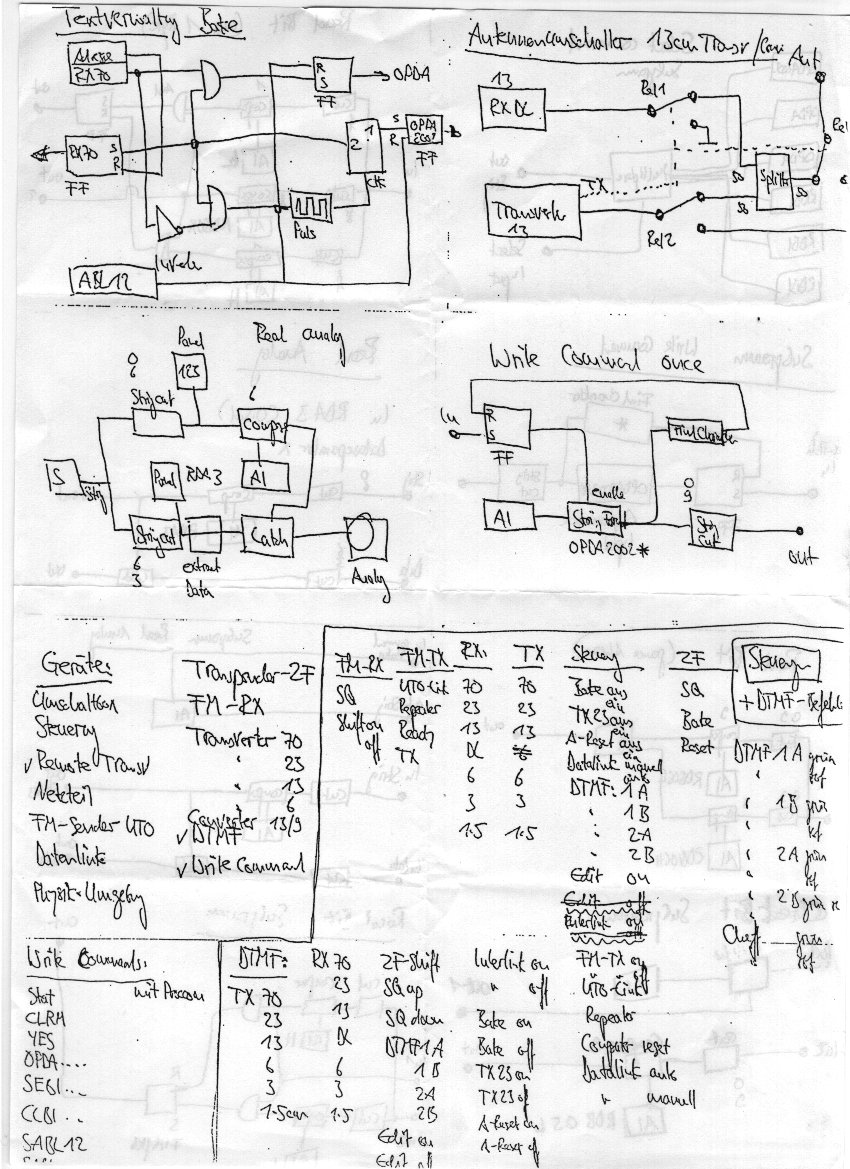 Textverwaltg Bake
RX70
R
S
FF
OPDA
RX70
S
R
FF
1
2
Clk
S
R
OPDA
FF
Puls
ABL12
Antennenumschalter 13cm Transv/
Ant
13
RX DL
Rel1
TX
Transverter
13
Rel2
Splitter
50
50
50
Real analog
Panel
123
0
6
Stringcut
6
Compare
S
String
Panel
RDA3
A1
Stringcut
6
3
extract
Data
Catch
Analog
Write Command once
In
R
S
FF
A1
enable
String Format
OPDA2002*
0
9
Strg
Cut
out
Geräte:
Transponder-ZF
Umschaltbox
FM-RX
Steuerg
Transverter 70
23
√ Remote Transv
13
Netzteil
6
FM-Sender UTO
Converter 13/9
√ DTMF
Datenlink
√ Write Command
Physik-Umgebg
FM-RX
SQ
Shift on
off
FM-TX
UTO-Link
Repeater
Ready
TX
RX:
70
23
13
DL
6
3
1.5
TX
70
23
13
6
3
1.5
Steuerg
Bake aus
ein
TX23 aus
ein
A-Reset aus
ein
Datalink manuell
auto
DTMF: 1A
" 1B
" 2A
" 2B
Edit on
Edit off
Interlink on
ZF
SQ
Bake
Reset
Steuerg
+ DTMF-Befehle
DTMF 1A grün
" rot
" 1B grün
" rot
" 2A grün
" rot
" 2B grün
grün
rot
Write Commands:
Stat
CLRM
YES
OPDA....
SEBI...
CCBI...
SABL12
DTMF:
TX 70
23
13
6
3
1.5cm
RX 70
23
13
DL
6
3
1.5
ZF-Shift
SQ up
SQ down
DTMF 1A
1B
2A
2B
Edit on
Edit off
Interlink on
" off
Bake on
Bake off
TX23 on
TX23 off
A-Reset on
A-Reset off
FM-TX off
UTO-Link
Repeater
Computer reset
Datalink auto
" manuell